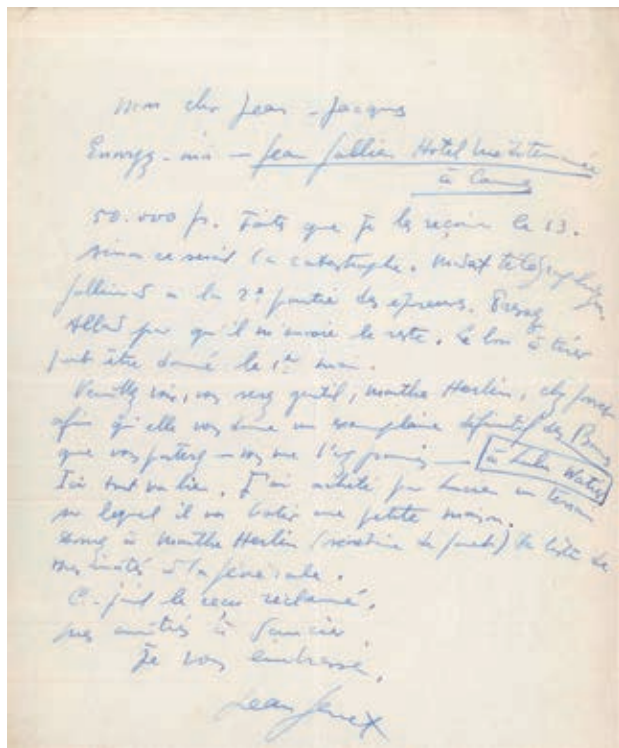 Mon cher Jean-Jacques
Envoyez-moi — Jean Hotel Mediterranée
à Cannes
50.000 fr. Faites que je les reçoive le 13.
sinon ce serait la catastrophe. Mandat télégraphique.
Gallimard a la 2e partie des épreuves. Pressez
pour qu'il m'envoie le reste. Le bon à tirer
peut être donné le 1er mai.
Veuillez voir, vous serez gentil, Marthe Herlin, chez Jouvet
afin qu'elle vous donne un exemplaire définitif des Bonnes
que vous porterez — vous me l'avez promis — à
Ici tout va bien. J'ai acheté pour Lucien un terrain
sur lequel il va bâtir une petite maison.
à Marthe Herlin (secrétaire de Jouvet) la liste de
mes invités à la générale.
C.-joint le reçu réclamé.
mes amitiés à
Je vous embrasse.
Jean Genet